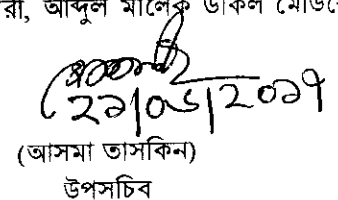 রা, আব্দুল মালেক উকিল
২১|০৬|২০১৭
(আসমা তাসকিন)
উপসচিব